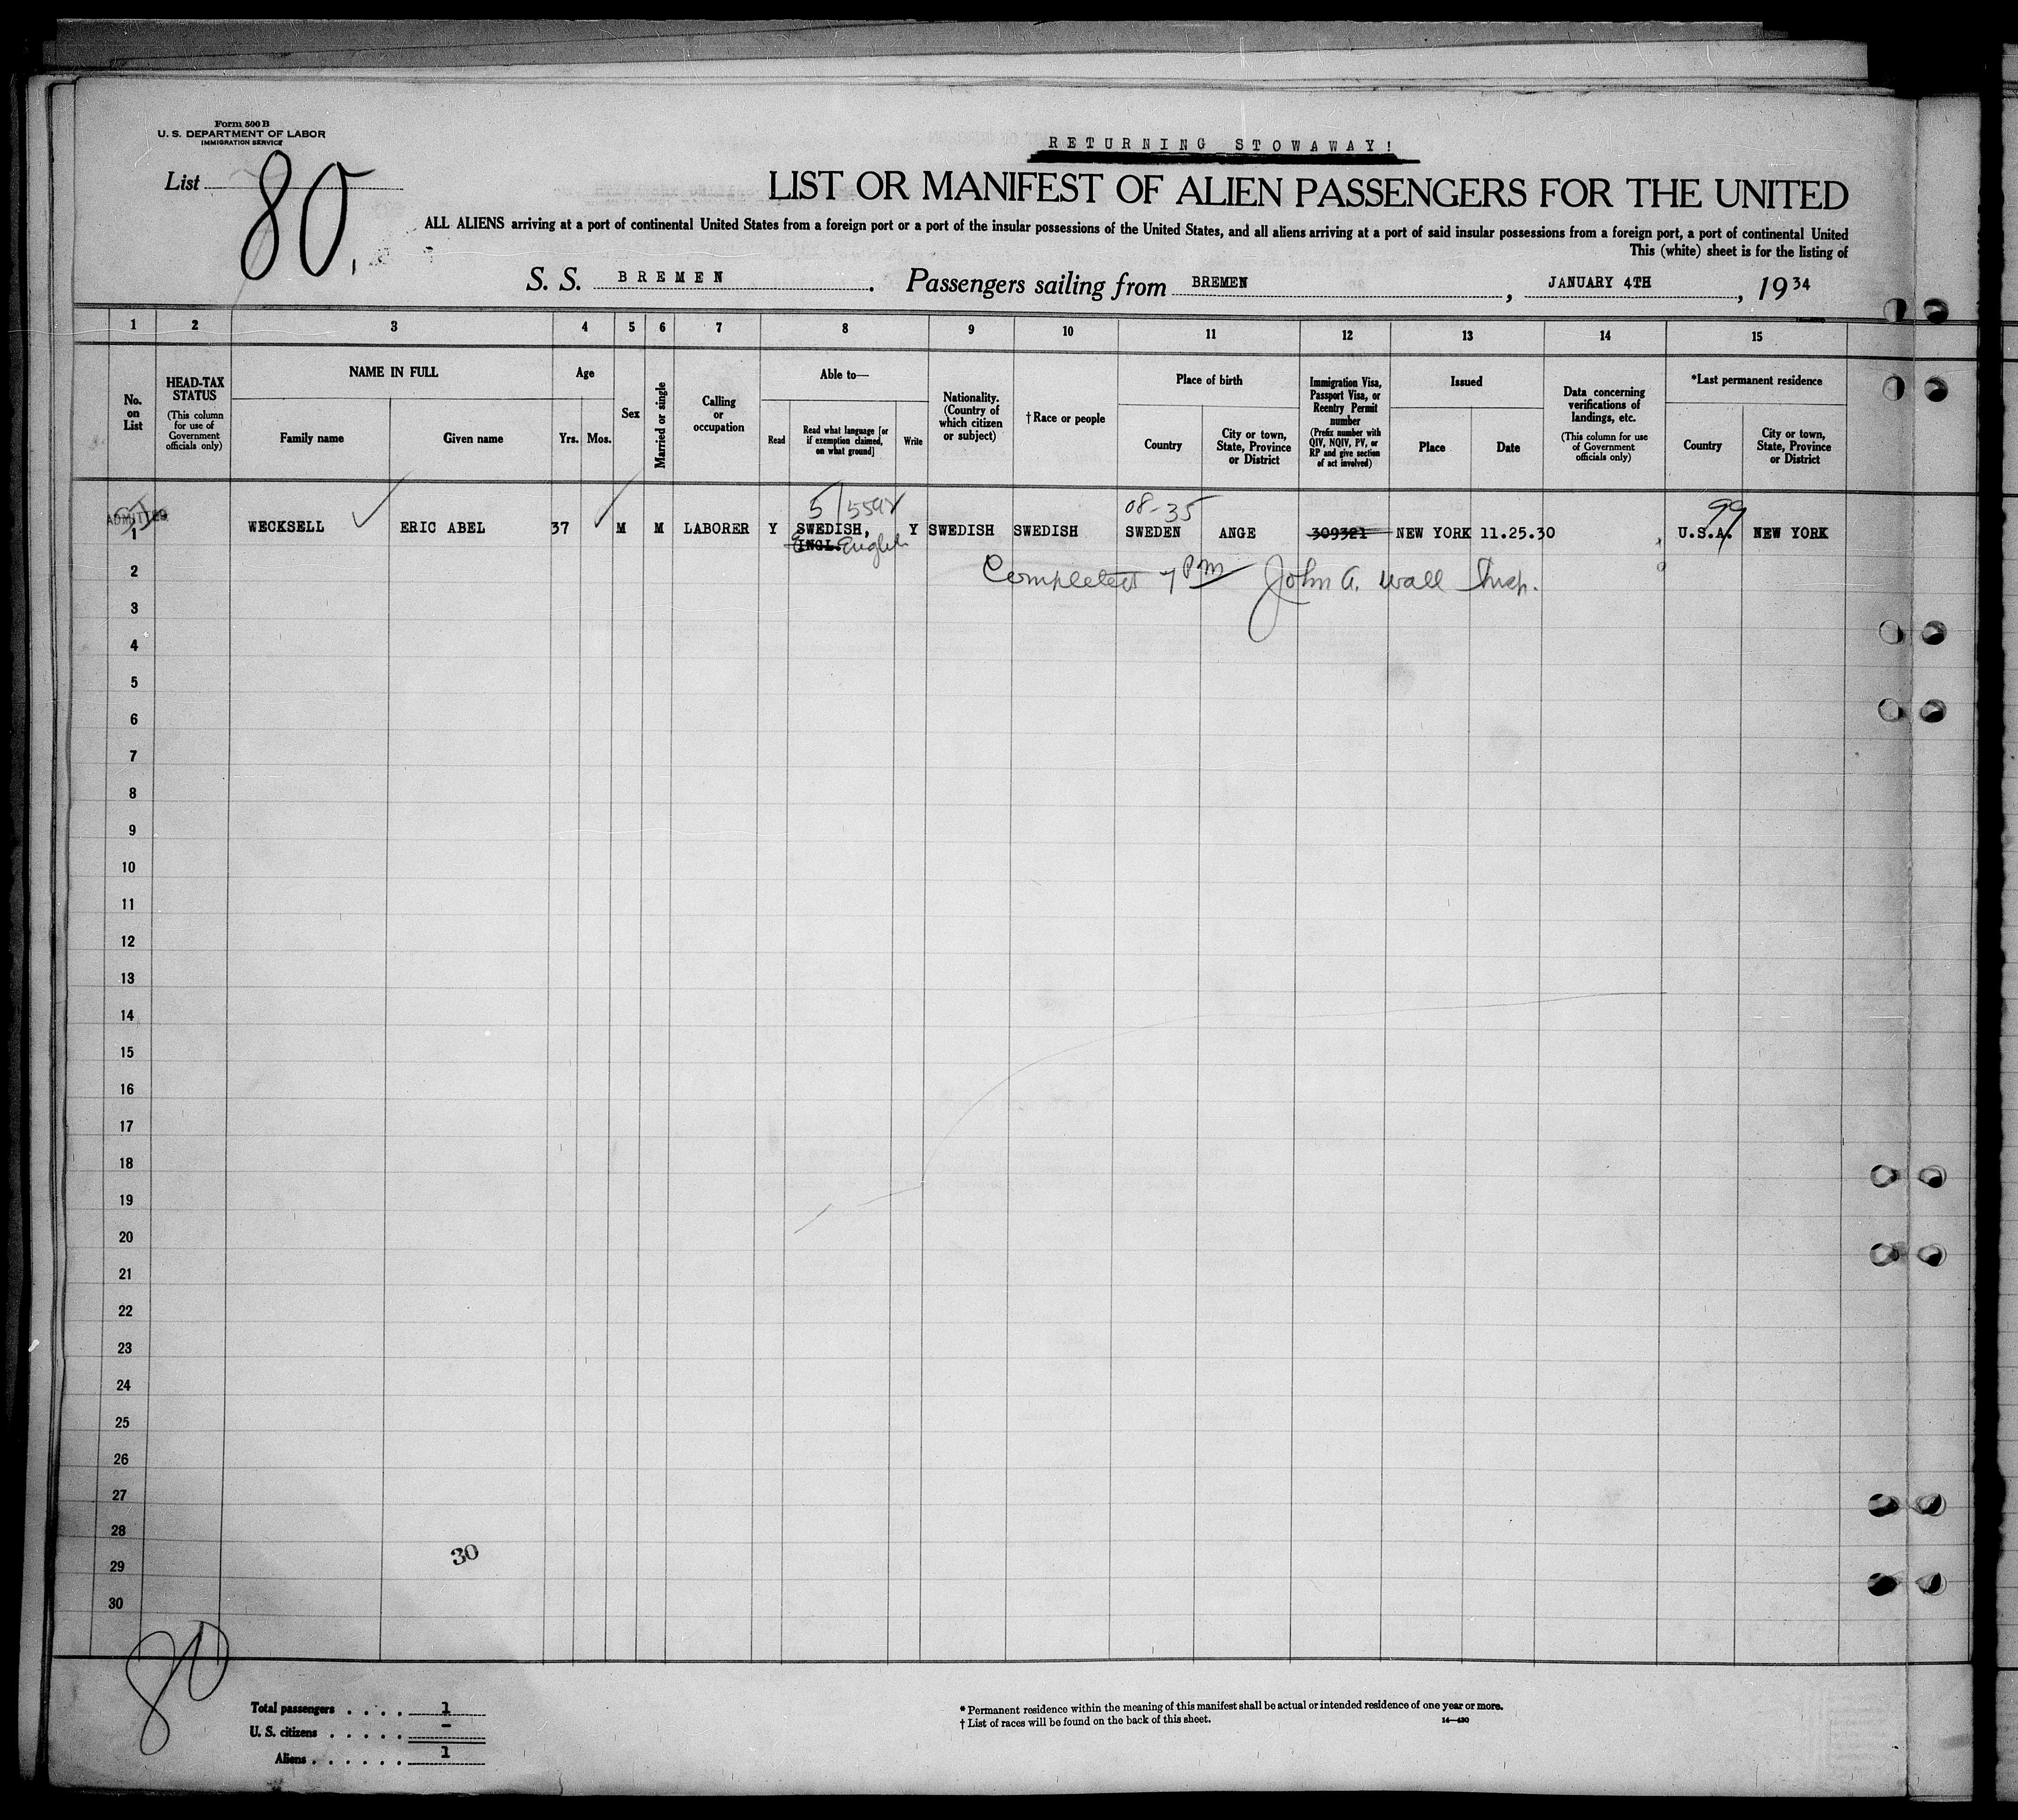 Form 500 B
U. S. DEPARTMENT OF LABOR
IMMIGRATION SERVICE
List 80.
RETURNING STOWAWAY!
LIST OR MANIFEST OF ALIEN PASSENGERS FOR THE UNITED
ALL ALIENS arriving at a port of continental United States from a foreign port or a port of the insular possessions of the United States, and all aliens arriving at a port of said insular possessions from a foreign port, a port of continental United
This (white) sheet is for the listing of
S. S. BREMEN. Passengers sailing from BREMEN, JANUARY 4TH, 1934
1 2 3 4 5 6 7 8 9 10 11 12 13 14 15
No. on List
HEAD-TAX STATUS
(This column for use of Government officials only)
NAME IN FULL
Family name
Given name
Age
Yrs.
Mos.
Sex
Married or single
Calling or occupation
Able to—
Read
Read what language [or if exemption claimed, on what ground]
Write
Nationality. (Country of which citizen or subject)
†Race or people
Place of birth
Country
City or town, State, Province or District
Immigration Visa, Passport Visa, or Reentry Permit number
(Prefix number with QIV, NQIV, PV, or RP and give section of act involved)
Issued
Place
Date
Data concerning verifications of landings, etc.
(This column for use of Government officials only)
*Last permanent residence
Country
City or town, State, Province or District
08-35 99
ADMITTED
1 WECKSELL ERIC ABEL 37 M M LABORER Y SWEDISH, Y SWEDISH SWEDISH SWEDEN ANGE 309321 NEW YORK 11.25.30 U.S.A. NEW YORK
ENGL. English
2 Completed 7 PM John A. Wall Insp.
3
4
5
6
7
8
9
10
11
12
13
14
15
16
17
18
19
20
21
22
23
24
25
26
27
28
30
29
30
80
Total passengers . . . . 1
U. S. citizens . . . . . –
Aliens . . . . . . 1
* Permanent residence within the meaning of this manifest shall be actual or intended residence of one year or more.
† List of races will be found on the back of this sheet.
14—430